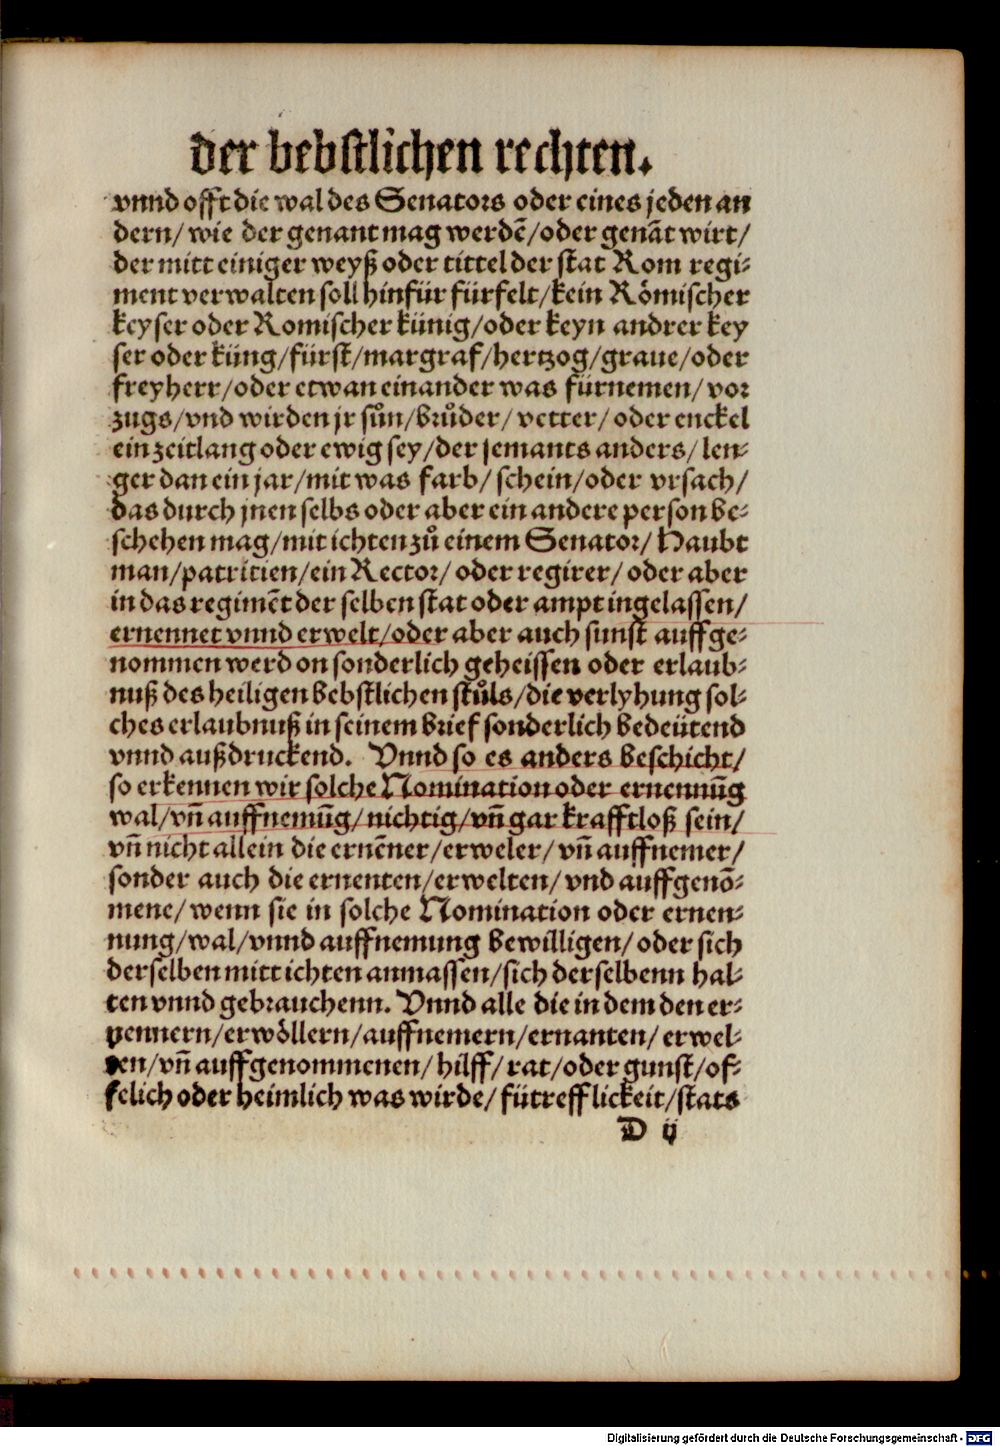 der bebstlichen rechten.
vnnd offt die wal des Senators oder eines jeden an
dern/ wie der genant mag werdẽ/oder genãt wirt/
der mitt einiger weyß oder tittel der stat Rom regi-
ment verwalten soll hinfür fürfelt/kein Rômischer
keyser oder Romischer künig/oder keyn andrer key
ser oder küng/fürst/margraf/hertzog/graue/oder
freyherr/oder etwan einander was fürnemen/ vor
zugs/vnd wirden jr sůn/brůder/ vetter/ oder enckel
ein zeitlang oder ewig sey/der jemants anders/ len-
ger dan ein jar/mit was farb/ schein/oder vrsach/
das durch jnen selbs oder aber ein andere person be-
schehen mag/mit ichten zů einem Senator/ Haubt
man/patritien/ein Rector/ oder regirer/ oder aber
in das regimẽt der selben stat oder ampt ingelassen/
ernennet vnnd erwelt/oder aber auch sunst auffge-
nommen werd on sonderlich geheissen oder erlaub-
nuß des heiligen bebstlichen stůls/die verlyhung sol-
ches erlaubnuß in seinem brief sonderlich bedeütend
vnnd außdruckend. Vnnd so es anders beschicht/
so erkennen wir solche Nomination oder ernennũg
wal/vñ auffnemũg/nichtig/vñ gar krafftloß sein/
vñ nicht allein die ernẽner/erweler/ vñ auffnemer/
sonder auch die ernenten/erwelten/ vnd auffgenõ-
mene/ wenn sie in solche Nomination oder ernen-
nung/wal/vnnd auffnemung bewilligen/ oder sich
derselben mitt ichten anmassen/sich derselbenn hal-
ten vnnd gebrauchenn. Vnnd alle die in dem den er-
nennern/erwôllern/auffnemern/ernanten/ erwel-
ten/vñ auffgenommenen/ hilff/ rat/oder gunst/of-
felich oder heimlich was wirde/ fütrefflickeit/stats
D ij
Digitalisierung gefördert durch die Deutsche Forschungsgemeinschaft - DFG